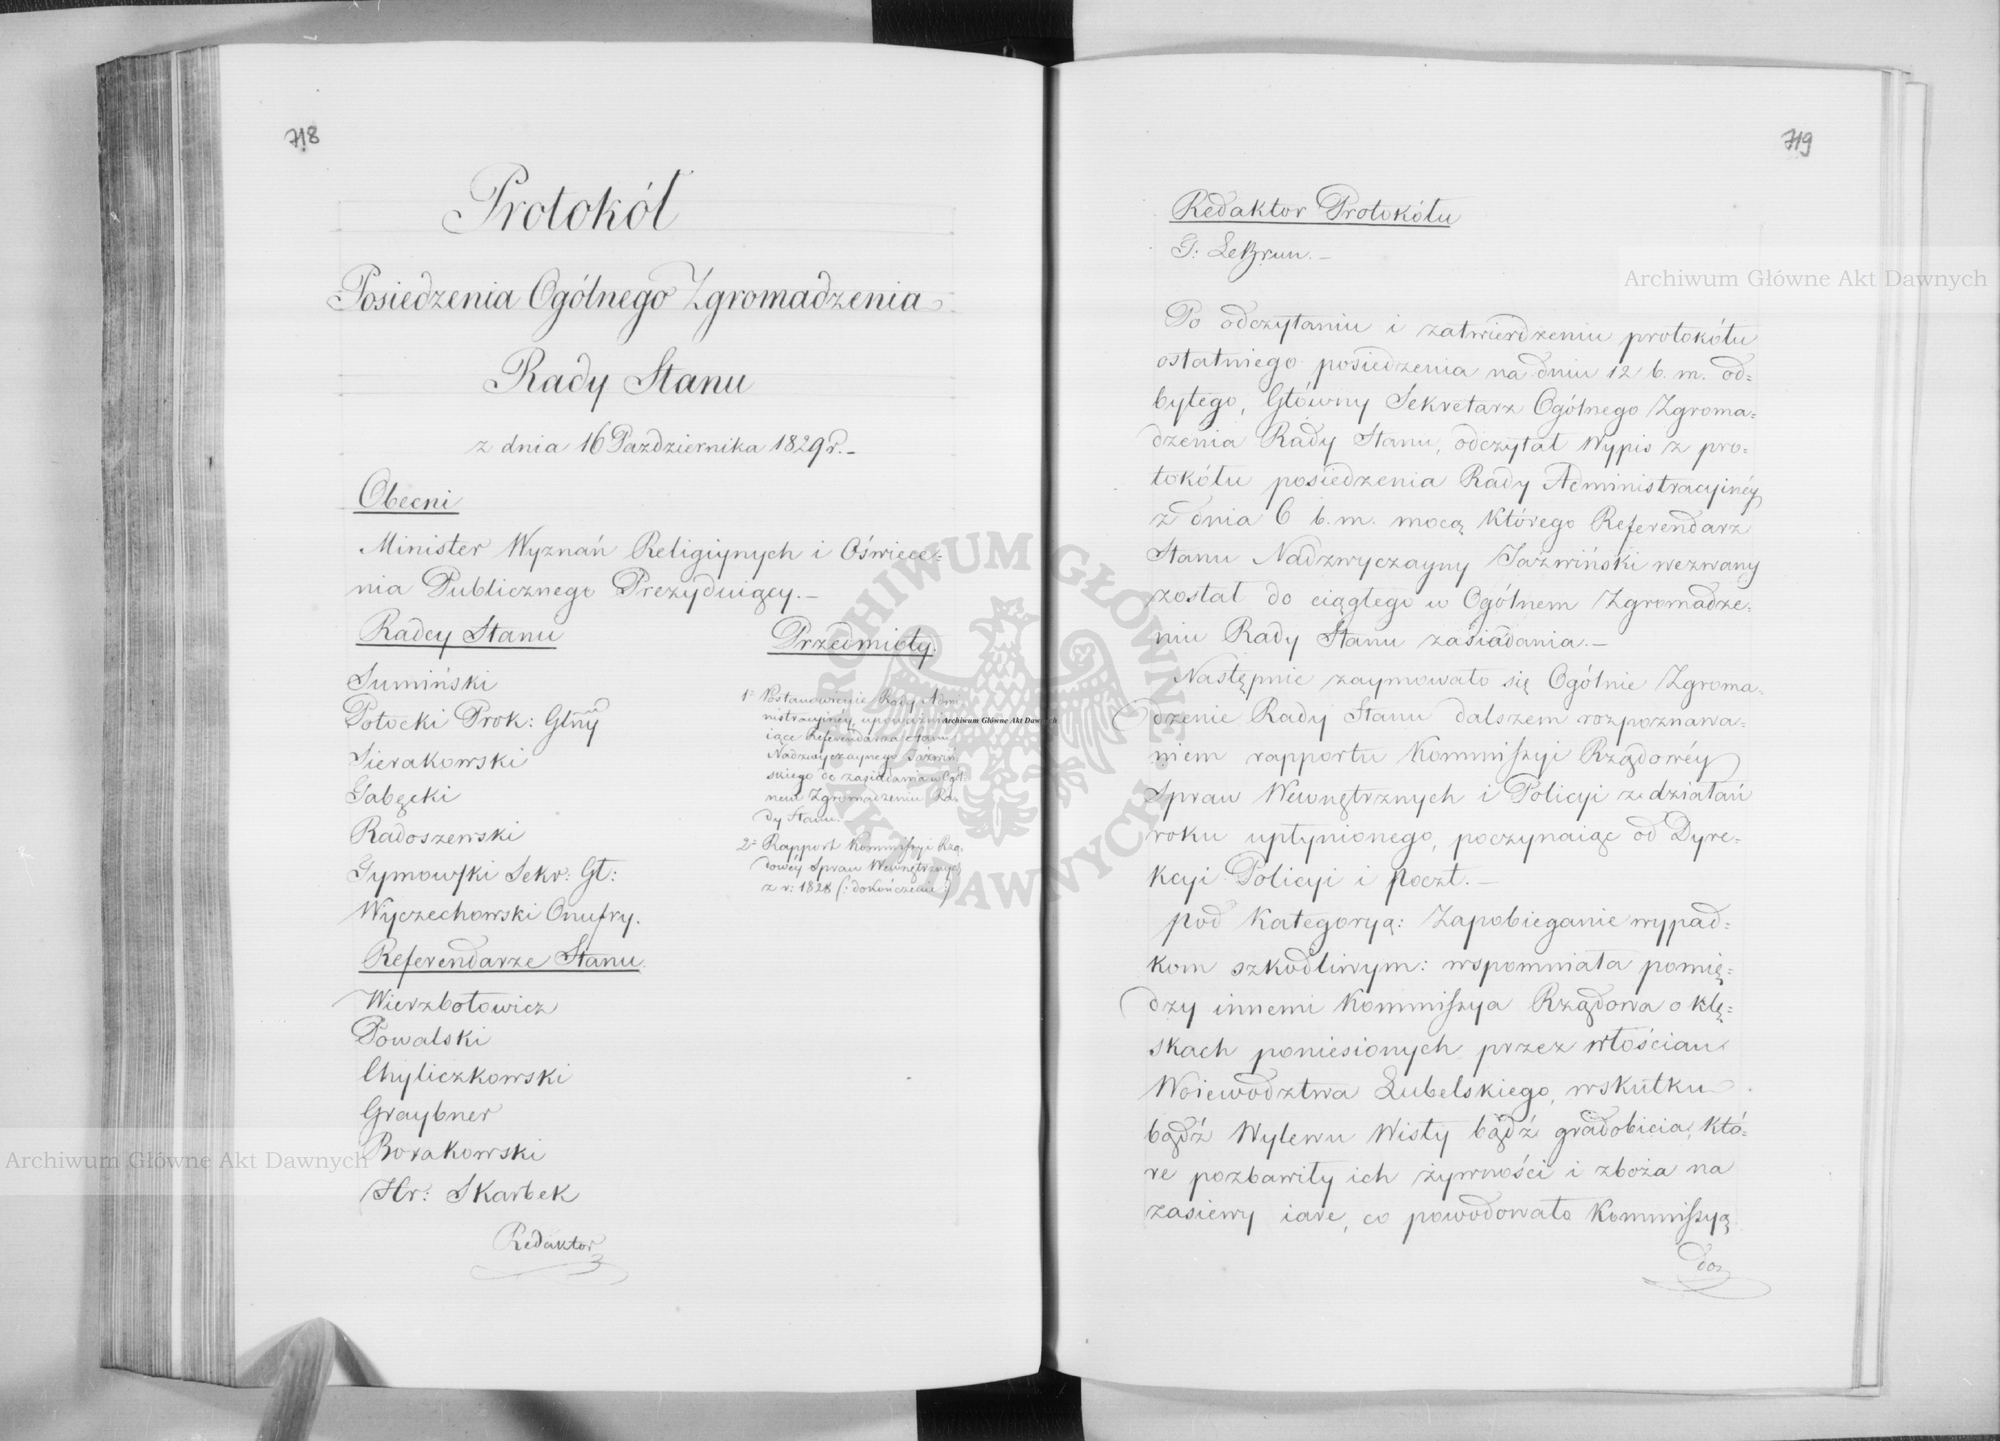 718
Protokół
Posiedzenia Ogólnego Zgromadzenia
Rady Stanu
z dnia 16 Pazdziernika 1829 r.-
Obecni
Minister Wyznań Religiynych i Oświece=
nia Publicznego Prezyduiący.-
Radcy Stanu
Sumiński
Potocki Prok: Głny
Sierakowski
Gabęcki
Radoszewski
Tymowski Sekr: Gł:
Wyczechowski Onufry.
Referendarze Stanu
Wierzbołowicz
Powalski
Chyliczkowski
Graybner
Borakowski
Hr: Skarbek
Redaktor
Przedmioty.
1= Postanowienie Rady Admi
nistracyinéy upoważni
iące Referendarza Stanu
Nadzwyczaynego Jaźwiń
skiego do zasiadania w Ogól
nem Zgromadzeniu Ra=
dy Stanu.
2= Rapport Kommissyi Rzą=
dowéy Spraw Wewnętrznych
z r: 1828 (: dokończenie :)
719
Redaktor Protokółu
G: LeBrun.-
Po odczytaniu i zatwierdzeniu protokółu
ostatniego posiedzenia na dniu 12 b. m. od=
bytego, Główny Sekretarz Ogólnego Zgroma=
dzenia Rady Stanu, odczytał Wypis z pro=
tokółu posiedzenia Rady Administracyinéy
z dnia 6 b. m. mocą którego Referendarz
Stanu Nadzwyczayny Jaźwiński wezwany
został do ciągłego w Ogólnem Zgromadze=
niu Rady Stanu zasiadania.-
Następnie zaymowało się Ogólnie Zgroma=
dzenie Rady Stanu dalszem rozpoznawa=
niem rapportu Kommissyi Rządowéy
Spraw Wewnętrznych i Policyi z działań
roku upłynionego, poczynaiąc od Dyre=
kcyi Policyi i Poczt.-
Pod kategoryą: Zapobieganie wypad=
kom szkodliwym: wspomniała pomię=
dzy innemi Kommissya Rządowa o klę=
skach poniesionych przez włościan
Woiewództwa Lubelskiego, wskutku
bądź Wylewu Wisły bądź gradobicia, któ=
re pozbawiły ich żywności i zboża na
zasiewy iare, co powodowało Kommissyą
do=
Archiwum Główne Akt Dawnych
Archiwum Główne Akt Dawnych
Archiwum Główne Akt Dawnych
ARCHIWUM GŁÓWNE AKT DAWNYCH